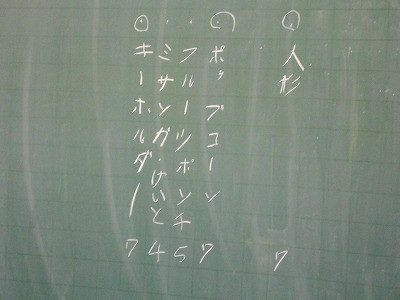 人形 7
ポップコーン 7
フルーツポンチ 5
ミサンガ・けいと 4
キーホルダー 7